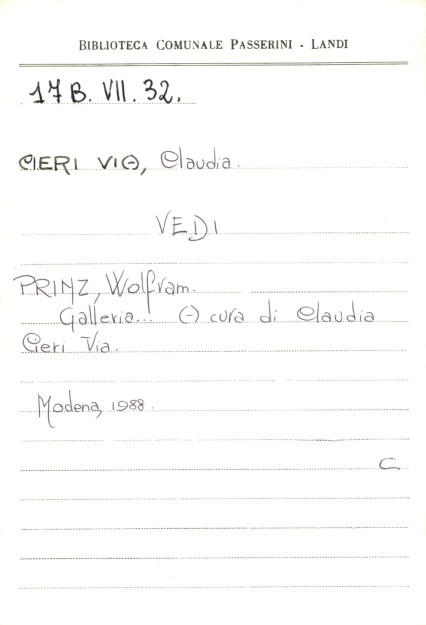 BIBLIOTECA COMUNALE PASSERINI - LANDI
17 B. VII. 32.
CIERI VIA, Claudia.
VEDI
PRINZ, Wolfram.
Galleria... A cura di Claudia
Cieri Via.
Modena, 1988.
C